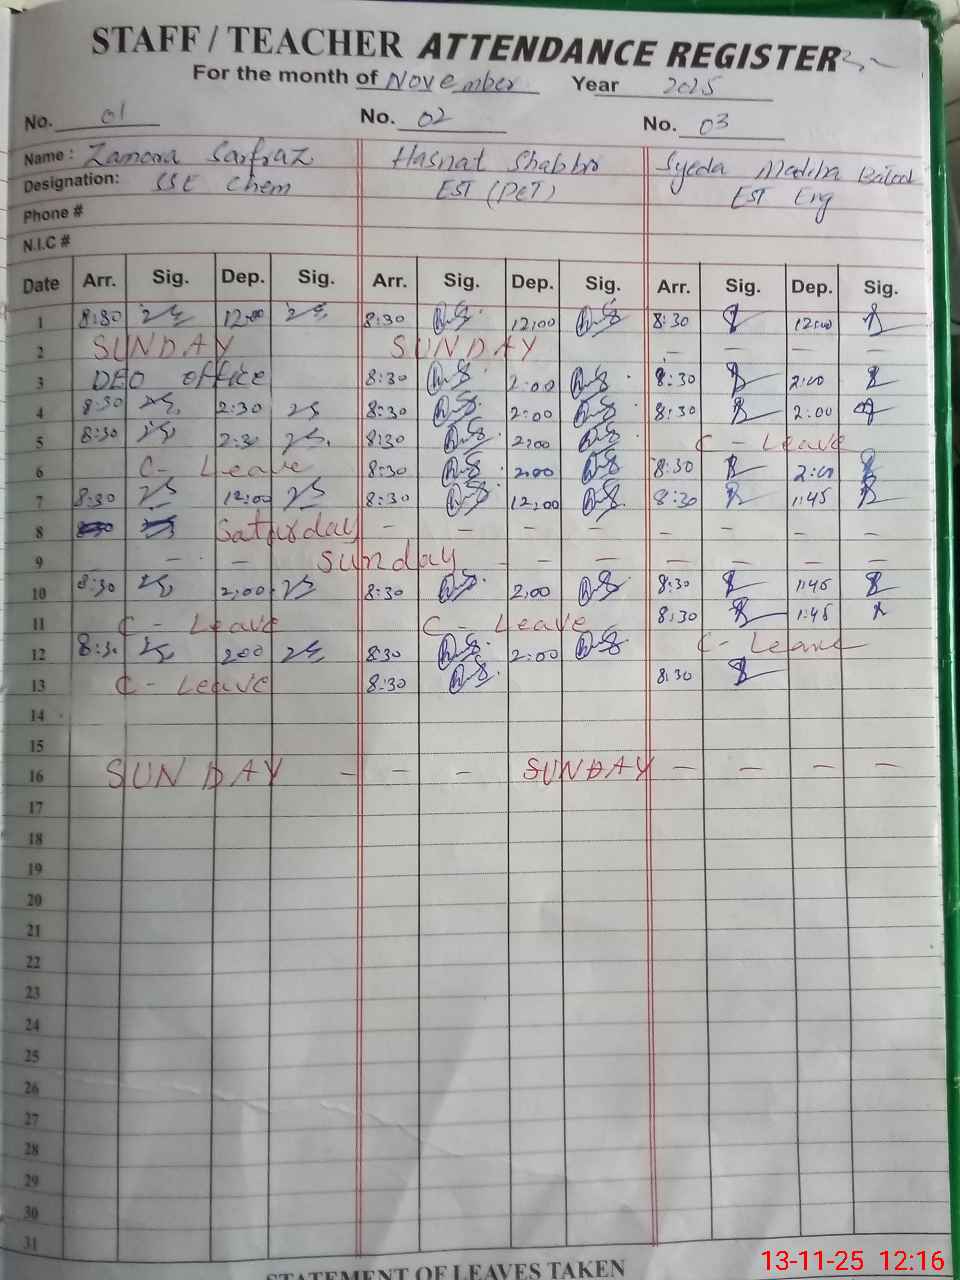 STAFF / TEACHER ATTENDANCE REGISTER
For the month of November Year 2025
No. 01 No. 02 No. 03
Name : Zamora Sarfraz Hasnat Shabbir Syeda Madiha
Designation: SSE Chem EST (PET) EST Eng
Phone #
N.I.C #
Date Arr. Sig. Dep. Sig. Arr. Sig. Dep. Sig. Arr. Sig. Dep. Sig.
1 8:30 12:00 8:30 12:00 8:30 12:00
2 SUNDAY SUNDAY — — — —
3 DEO office 8:30 2:00 8:30 2:00
4 8:30 2:30 8:30 2:00 8:30 2:00
5 8:30 2:30 8:30 2:00 C - Leave
6 C - Leave 8:30 2:00 8:30 2:00
7 8:30 12:00 8:30 12:00 8:30 1:45
8 Saturday — — — — — — — —
9 — — Sunday - — — — — — —
10 8:30 2:00 8:30 2:00 8:30 1:45
11 C - Leave C - Leave 8:30 1:45
12 8:30 2:00 8:30 2:00 C - Leave
13 C - Leave 8:30 8:30
14
15
16 SUNDAY — — — SUNDAY — — — —
17
18
19
20
21
22
23
24
25
26
27
28
29
30
31
STATEMENT OF LEAVES TAKEN
13-11-25 12:16